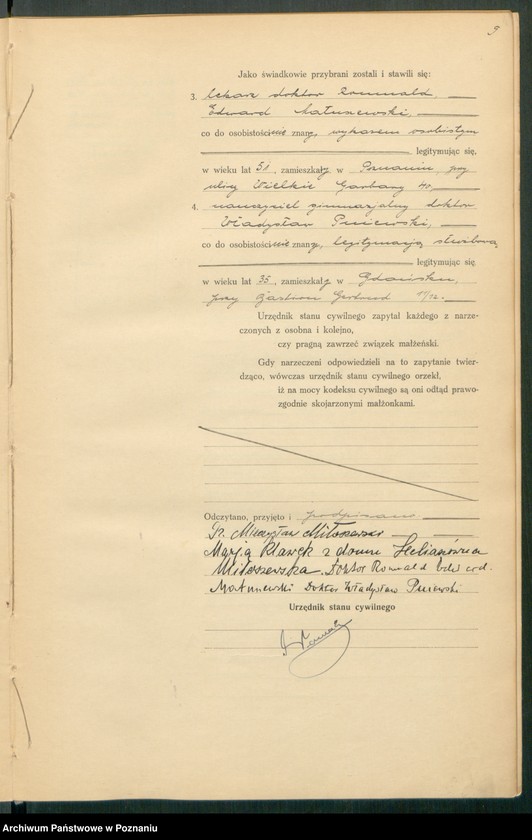 9
Jako świadkowie przybrani zostali i stawili się:
3. lekarz doktor Romuald
Edward Matuszewski,
co do osobistości nie znany, wykazem osobistym
legitymując się,
w wieku lat 51, zamieszkały w Poznaniu, przy
ulicy Wielkie Garbary 40,
4. nauczyciel gimnazjalny doktor
Władysław Pniewski,
co do osobistości nie znany, legitymacją służbową
legitymując się
w wieku lat 35, zamieszkały w Gdańsku,
przy
Urzędnik stanu cywilnego zapytał każdego z narze-
czonych z osobna i kolejno,
czy pragną zawrzeć związek małżeński.
Gdy narzeczeni odpowiedzieli na to zapytanie twier-
dząco, wówczas urzędnik stanu cywilnego orzekł,
iż na mocy kodeksu cywilnego są oni odtąd prawo-
zgodnie skojarzonymi małżonkami.
Odczytano, przyjęto i podpisano
Dr. Mieczysław Miłoszewski
Marja Klawek z domu
Miłoszewska. Doktor Romuald Edward
Matuszewski Doktor Władysław Pniewski
Urzędnik stanu cywilnego
Archiwum Państwowe w Poznaniu